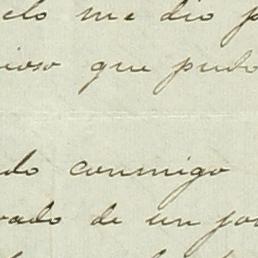 elo me dio p
ioso que pudo
do conmigo
vado de un po